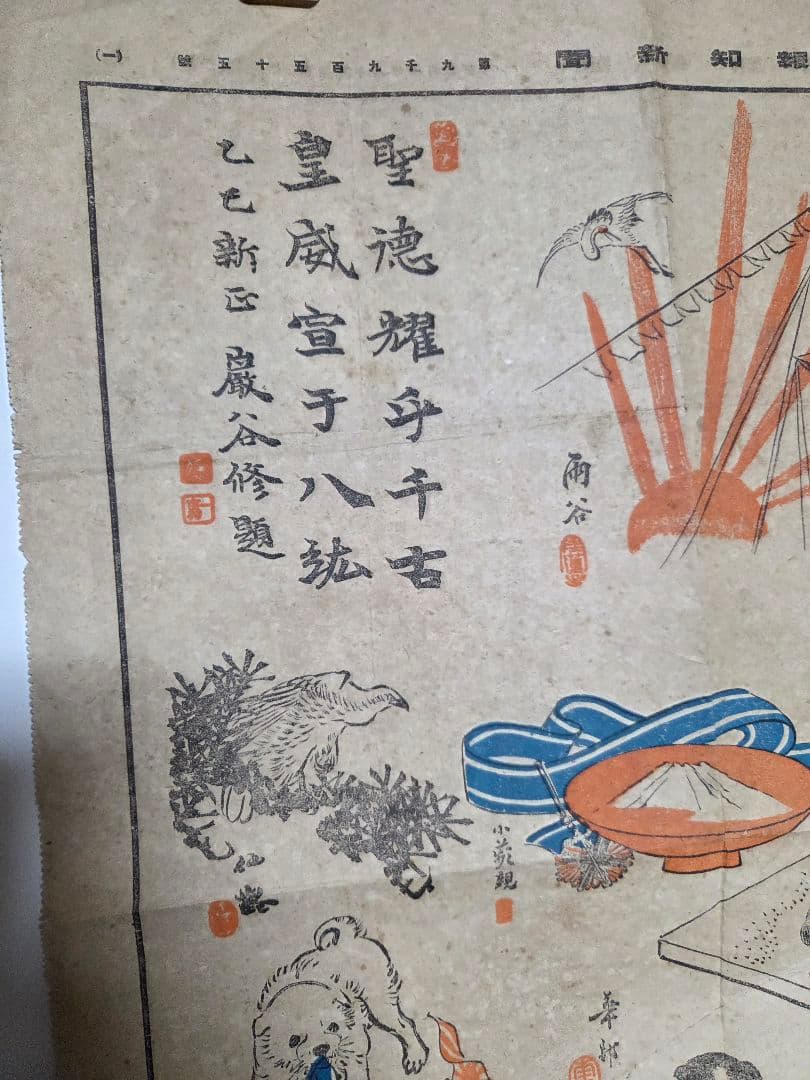 報知新聞
第九千九百五十五號
(一)
聖德耀乎千古
皇威宣于八紘
乙巳新正 巖谷修題
雨谷
小蘋親